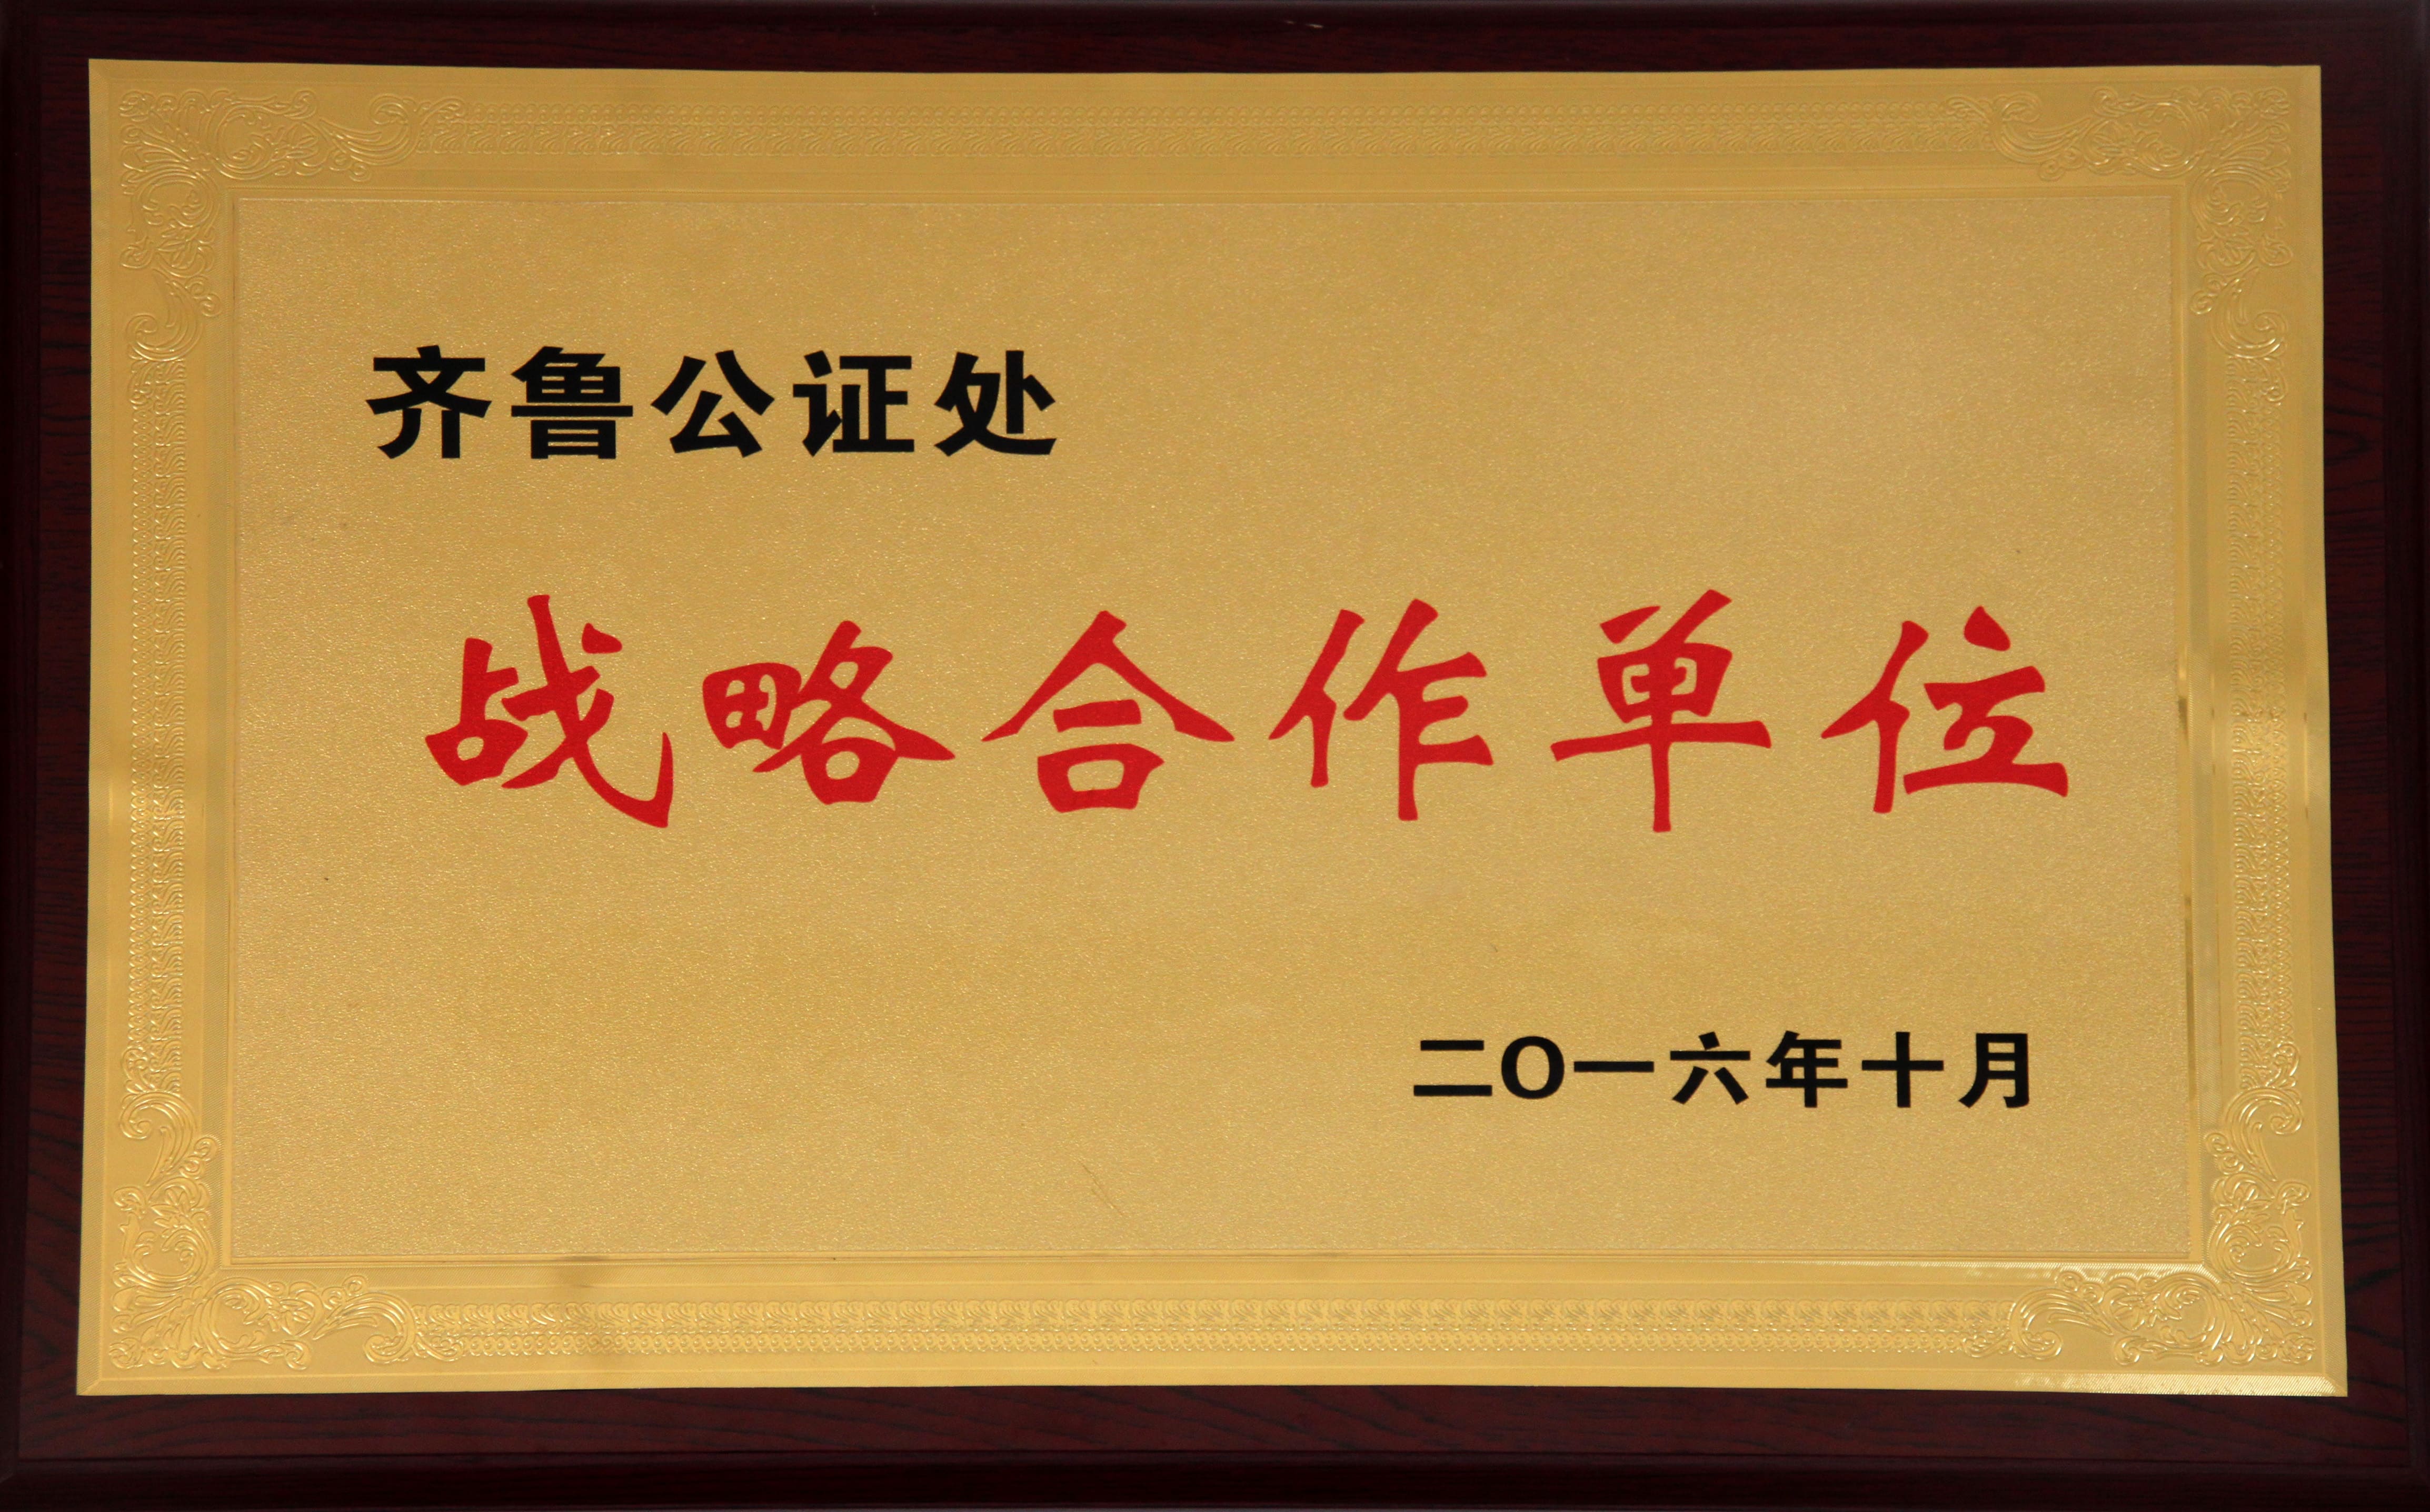 齐鲁公证处
战略合作单位
二〇一六年十月